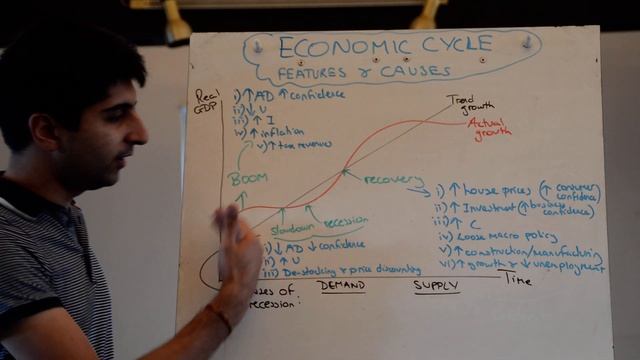 ECONOMIC CYCLE
FEATURES & CAUSES
Real
GDP
i) ↑ AD ↑ confidence
ii) ↓ U
iii) ↑ I
iv) ↑ inflation
v) ↑ tax revenues
Trend
growth
Actual
growth
BOOM
recovery
slowdown
recession
i) ↑ house prices (↑ consumer
confidence)
ii) ↑ Investment (↑ business
confidence)
iii) ↑ C
iv) Loose macro policy
v) ↑ construction/manufacturing
vi) ↑ growth & ↓ unemployment
i) ↓ AD ↓ confidence
ii) ↑ U
iii) De-stocking & price discounting
Time
of
recession:
DEMAND
SUPPLY